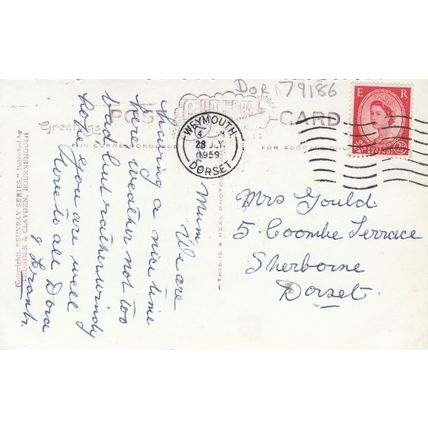 Dor 179186
POST CARD
Greetings
FOR CORRESPONDENCE
FOR ADDRESS ONLY
E R
WEYMOUTH
28 JLY
1959
DORSET
THIS IS A REAL PHOTO
"SUNRAY SERIES," Published by
& CLAYDEN, BOURNEMOUTH
Mum. We are
having a nice time
here weather not too
bad but rather windy
hope you are well
Love to all Dora
& Frank.
Mrs Gould
5. Coombe Terrace
Sherborne
Dorset.